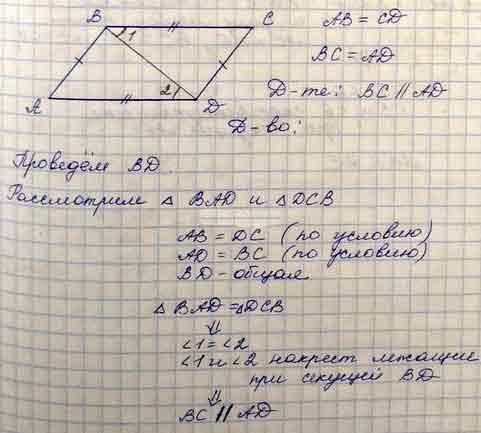 B C
1
2
A D
AB = CD
BC = AD
Д-те: BC || AD
Д-во:
Проведём BD.
Рассмотрим △ BAD и △ DCB
AB = DC (по условию)
AD = BC (по условию)
BD - общая
△ BAD = △ DCB
⇓
∠1 = ∠2
∠1 и ∠2 накрест лежащие
при секущей BD
⇓
BC || AD